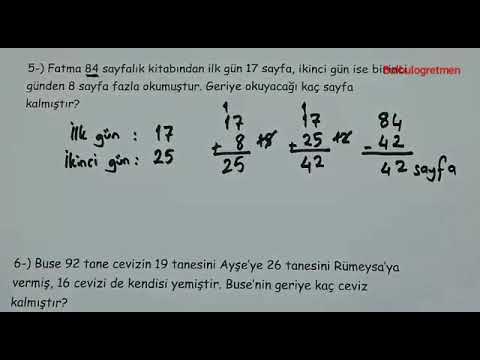 5-) Fatma 84 sayfalık kitabından ilk gün 17 sayfa, ikinci gün ise birinci
günden 8 sayfa fazla okumuştur. Geriye okuyacağı kaç sayfa
kalmıştır?
ilk gün : 17
ikinci gün : 25
1
17
+ 8
25
1
17
+ 25
42
84
- 42
42 sayfa
6-) Buse 92 tane cevizin 19 tanesini Ayşe'ye 26 tanesini Rümeysa'ya
vermiş, 16 cevizi de kendisi yemiştir. Buse'nin geriye kaç ceviz
kalmıştır?